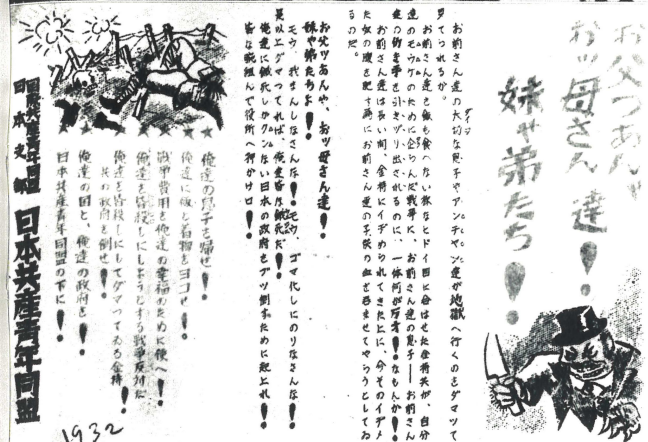 お父つあんや
おッ母さん達！
妹や弟たち！
お前さん達の大切な息子やアンチャン達が地獄へ行くのをダマツて
見てられるか。
お前さん達を飯も食へない様なヒドイ目に会はせた金持共が、自分
達のモウケのために企らんだ戦争に、お前さん達の息子――お前さん
達の働き手を引きヅリ出されるのに、一体何が万才！なもんか！
お前さん達は長い間、金持にイヂめられてきた上に、今そのイヂメ
た奴の腹を肥す為にお前さん達の子供の血を呑ませてやらうとしてゐ
るのだ。
お父ッあんや、おッ母さん達！
妹や弟たちよ！
モウ、我まんしなさんな！モウ、ゴマ化しにのりなさんな！
是以上ダマつてれば、俺達皆な餓死だ！
俺達に餓死しかクンない日本の政府をブツ倒すために起上れ！
皆な腕組んで役所へ押かけロ！
俺達の息子を帰せ！
俺達に飯と着物をヨコせ！
戦争費用を俺達の幸福のために使へ！
俺達を皆殺しにしようとする戦争反対だ
俺達を皆殺しにしてダマつてゐる金持
共の政府を倒せ！
俺達の国と、俺達の政府を！
日本共産青年同盟の下に！
国際共産青年同盟
日本支部
日本共産青年同盟
1932